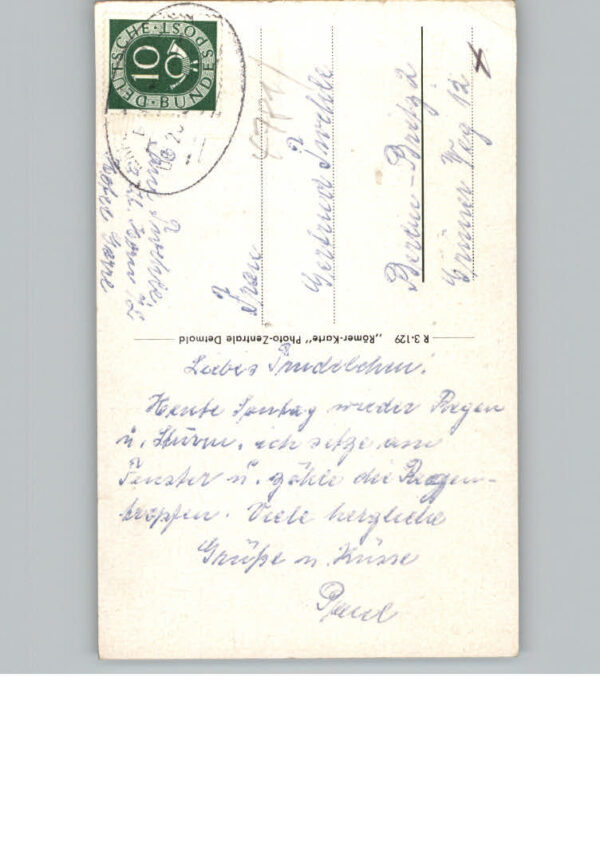 DEUTSCHE BUNDESPOST
10
Frau
Gertrud
Berlin-Britz 2
Grüner Weg 12
R 3·129 „Römer-Karte" Photo-Zentrale Detmold
Liebes Trudelchen!
Heute Sontag wieder Regen
u. Sturm. ich setze am
Fenster u. zähle die Regen-
tropfen. Viele herzliche
Grüße u. Küsse
Paul